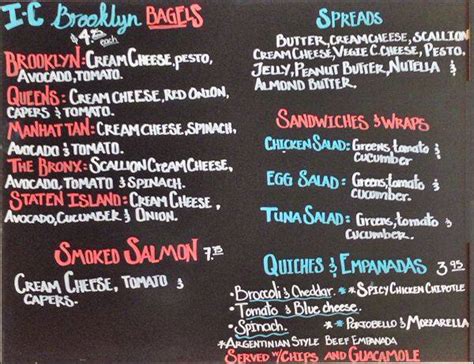 I·C Brooklyn BAGELS
$4.25 each
BROOKLYN: CREAM CHEESE, PESTO,
AVOCADO, TOMATO.
QUEENS: CREAM CHEESE, RED ONION,
CAPERS & TOMATO.
MANHATTAN: CREAM CHEESE, SPINACH,
AVOCADO, TOMATO.
THE BRONX: SCALLION CREAM CHEESE,
AVOCADO, TOMATO & SPINACH.
STATEN ISLAND: CREAM CHEESE,
AVOCADO, CUCUMBER & ONION.
SMOKED SALMON 7.95
CREAM CHEESE, TOMATO &
CAPERS.
SPREADS
BUTTER, CREAM CHEESE, SCALLION
CREAM CHEESE, VEGIE C. CHEESE, PESTO
JELLY, PEANUT BUTTER, NUTELLA &
ALMOND BUTTER.
SANDWICHES & WRAPS
CHICKEN SALAD: Greens, tomato &
cucumber
EGG SALAD: Greens, tomato &
cucumber.
TUNA SALAD: Greens, tomato &
cucumber.
QUICHES & EMPANADAS 3.95
• Broccoli & Cheddar. * * SPICY CHICKEN CHIPOTLE
• Tomato & Blue cheese.
• Spinach. * * PORTOBELLO & MOZZARELLA
* ARGENTINIAN STYLE BEEF EMPANADA
SERVED W/ CHIPS AND GUACAMOLE